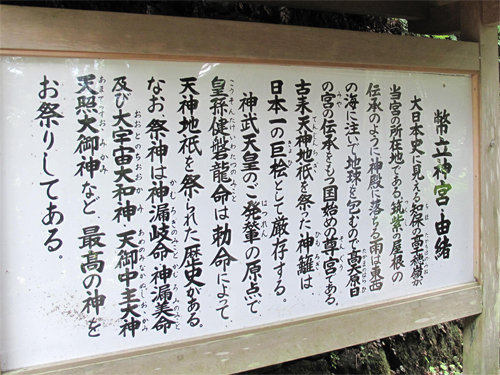 幣立神宮・由緒
大日本史に見える知保の高千穂嶺が
当宮の所在地である。筑紫の屋根の
伝承のように神殿に落ちる雨は東西
の海に注いで地球を包むので高天原日
の宮の伝承をもつ国始めの尊宮である。
古来天神地祇を祭った神籬は、
日本一の巨桧として厳存する。
神武天皇のご発輦の原点で
皇孫健磐龍命は勅命によって、
天神地祇を祭られた歴史がある。
なお、祭神は神漏岐命・神漏美命
及び大宇宙大和神・天御中主大神
天照大御神など、最高の神を
お祭りしてある。